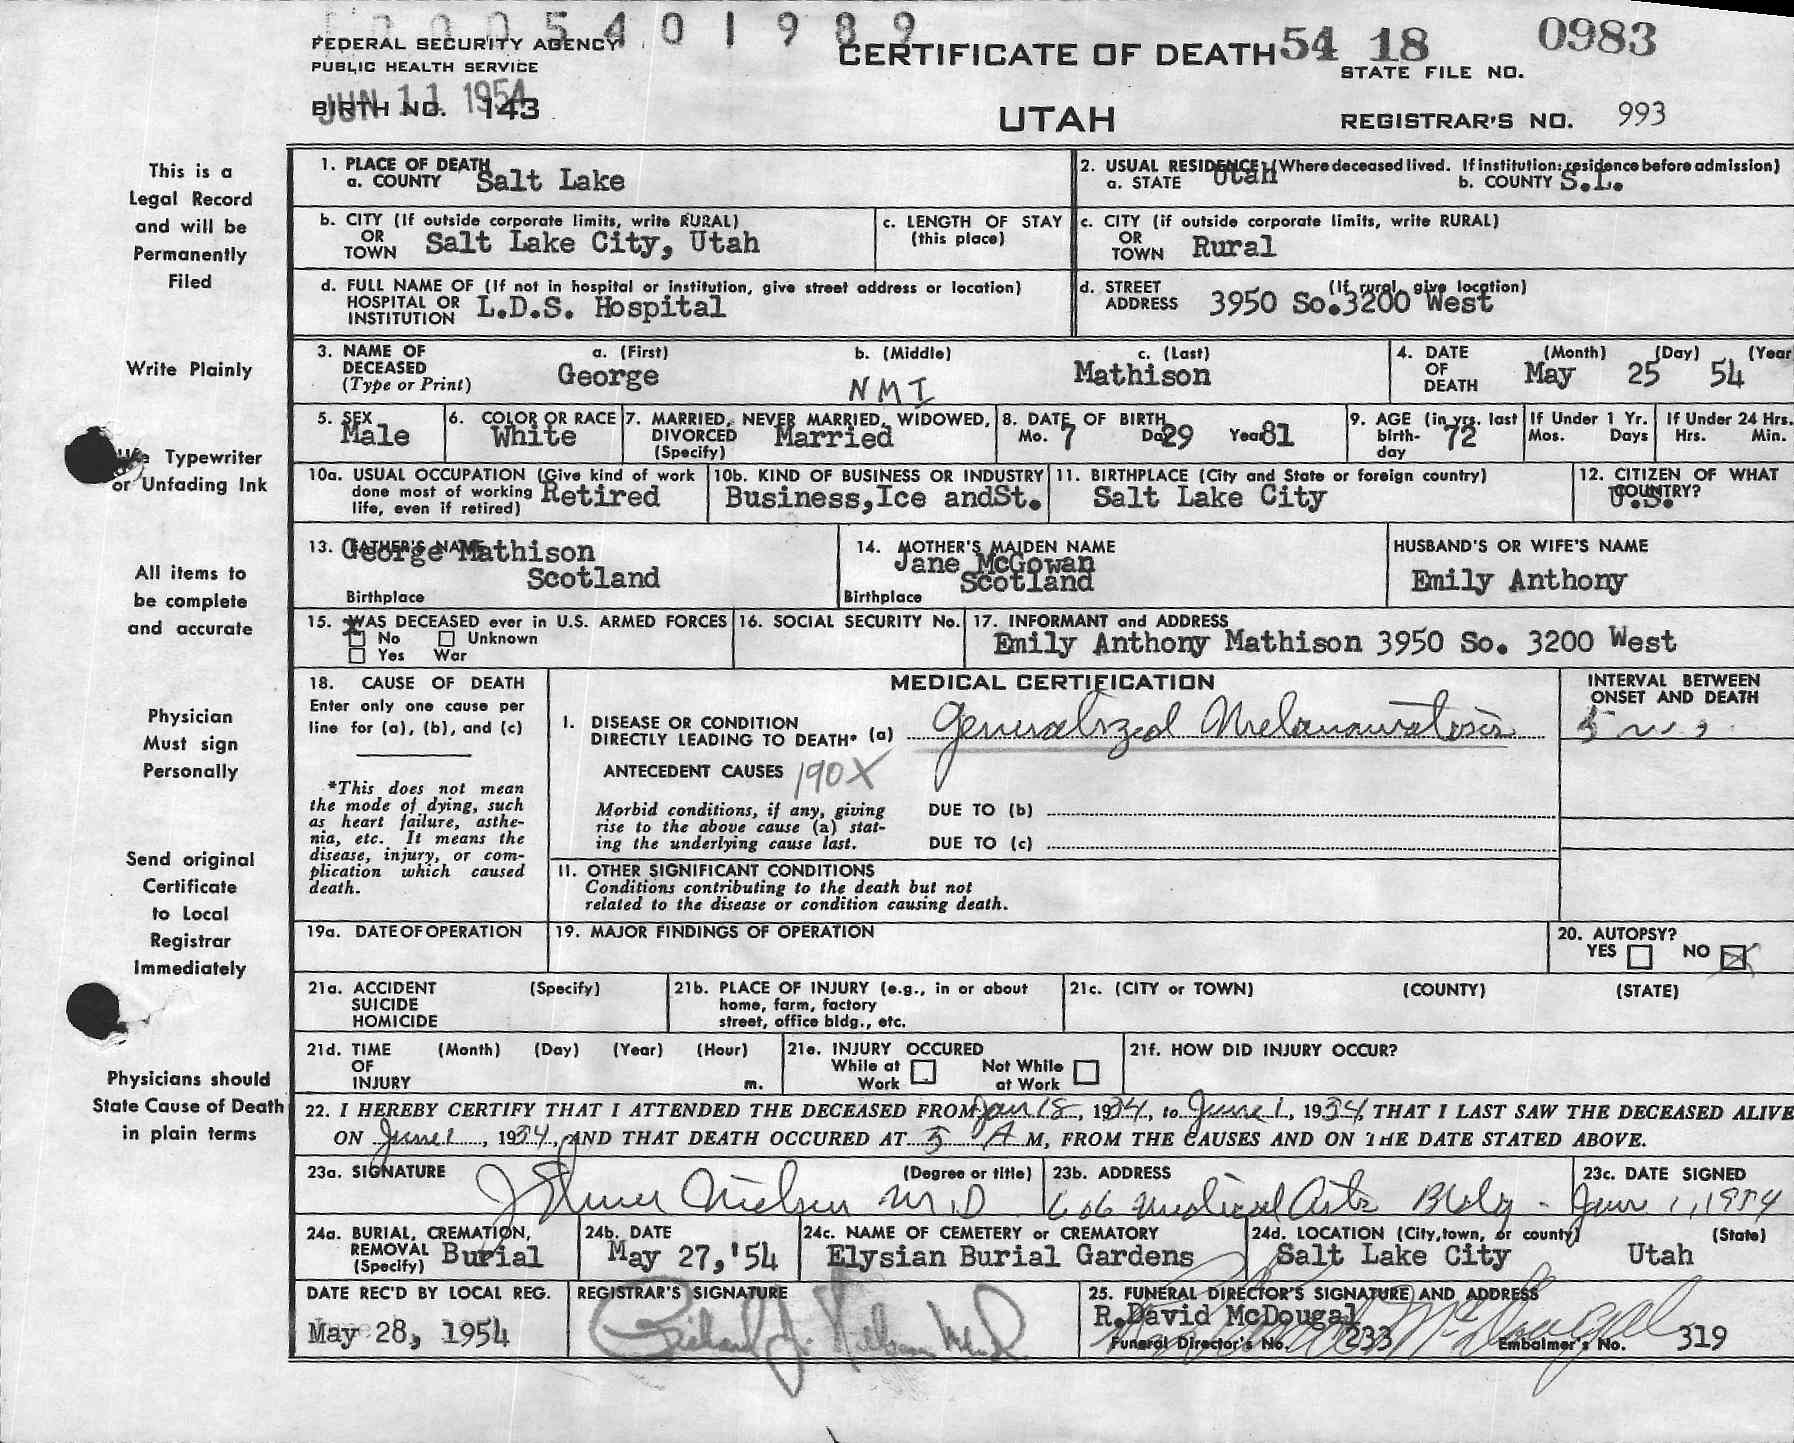 1 0 0 0 5 4 0 1 9 8 9
FEDERAL SECURITY AGENCY
PUBLIC HEALTH SERVICE
CERTIFICATE OF DEATH 54 18 0983
STATE FILE NO.
JUN 11 1954
BIRTH NO. 143
UTAH
REGISTRAR'S NO. 993
This is a
Legal Record
and will be
Permanently
Filed
Write Plainly
Use Typewriter
or Unfading Ink
All items to
be complete
and accurate
Physician
Must sign
Personally
Send original
Certificate
to Local
Registrar
Immediately
Physicians should
State Cause of Death
in plain terms
1. PLACE OF DEATH
a. COUNTY Salt Lake
2. USUAL RESIDENCE (Where deceased lived. If institution: residence before admission)
a. STATE Utah b. COUNTY S.L.
b. CITY (If outside corporate limits, write RURAL)
OR
TOWN Salt Lake City, Utah
c. LENGTH OF STAY
(this place)
c. CITY (if outside corporate limits, write RURAL)
OR
TOWN Rural
d. FULL NAME OF (If not in hospital or institution, give street address or location)
HOSPITAL OR
INSTITUTION L.D.S. Hospital
d. STREET (If rural, give location)
ADDRESS 3950 So.3200 West
3. NAME OF
DECEASED
(Type or Print)
a. (First)
George
b. (Middle)
NMI
c. (Last)
Mathison
4. DATE
OF
DEATH
(Month) (Day) (Year
May 25 54
5. SEX
Male
6. COLOR OR RACE
White
7. MARRIED, NEVER MARRIED, WIDOWED,
DIVORCED Married
(Specify)
8. DATE OF BIRTH
Mo. 7 Da 29 Year 81
9. AGE (in yrs. last
birth-
day 72
If Under 1 Yr.
Mos. Days
If Under 24 Hrs.
Hrs. Min.
10a. USUAL OCCUPATION (Give kind of work
done most of working
life, even if retired) Retired
10b. KIND OF BUSINESS OR INDUSTRY
Business,Ice andSt.
11. BIRTHPLACE (City and State or foreign country)
Salt Lake City
12. CITIZEN OF WHAT
COUNTRY?
U.S.
13. FATHER'S NAME
George Mathison
Scotland
Birthplace
14. MOTHER'S MAIDEN NAME
Jane McGowan
Scotland
Birthplace
HUSBAND'S OR WIFE'S NAME
Emily Anthony
15. WAS DECEASED ever in U.S. ARMED FORCES
x
No Unknown
Yes War
16. SOCIAL SECURITY No.
17. INFORMANT and ADDRESS
Emily Anthony Mathison 3950 So. 3200 West
18. CAUSE OF DEATH
Enter only one cause per
line for (a), (b), and (c)
*This does not mean
the mode of dying, such
as heart failure, asthe-
nia, etc. It means the
disease, injury, or com-
plication which caused
death.
MEDICAL CERTIFICATION
INTERVAL BETWEEN
ONSET AND DEATH
I. DISEASE OR CONDITION
DIRECTLY LEADING TO DEATH* (a) Generalized Melanomatosis
ANTECEDENT CAUSES 190X
Morbid conditions, if any, giving
rise to the above cause (a) stat-
ing the underlying cause last.
DUE TO (b)
DUE TO (c)
II. OTHER SIGNIFICANT CONDITIONS
Conditions contributing to the death but not
related to the disease or condition causing death.
19a. DATE OF OPERATION
19. MAJOR FINDINGS OF OPERATION
20. AUTOPSY?
YES NO X
21a. ACCIDENT (Specify)
SUICIDE
HOMICIDE
21b. PLACE OF INJURY (e.g., in or about
home, farm, factory
street, office bldg., etc.
21c. (CITY or TOWN) (COUNTY) (STATE)
21d. TIME (Month) (Day) (Year) (Hour)
OF
INJURY m.
21e. INJURY OCCURED
While at Not While
Work at Work
21f. HOW DID INJURY OCCUR?
22. I HEREBY CERTIFY THAT I ATTENDED THE DECEASED FROM Jan 18, 1954, to June 1, 1954, THAT I LAST SAW THE DECEASED ALIVE
ON June 1, 1954, AND THAT DEATH OCCURED AT 5 A M, FROM THE CAUSES AND ON THE DATE STATED ABOVE.
23a. SIGNATURE (Degree or title)
J Elmer Nielsen M.D
23b. ADDRESS
606 Medical Arts Bldg -
23c. DATE SIGNED
June 1, 1954
24a. BURIAL, CREMATION,
REMOVAL
(Specify) Burial
24b. DATE
May 27,'54
24c. NAME OF CEMETERY or CREMATORY
Elysian Burial Gardens
24d. LOCATION (City,town, or county) (State)
Salt Lake City Utah
DATE REC'D BY LOCAL REG.
May 28, 1954
REGISTRAR'S SIGNATURE
25. FUNERAL DIRECTOR'S SIGNATURE AND ADDRESS
R.David McDougal
Funeral Director's No. 233 Embalmer's No. 319